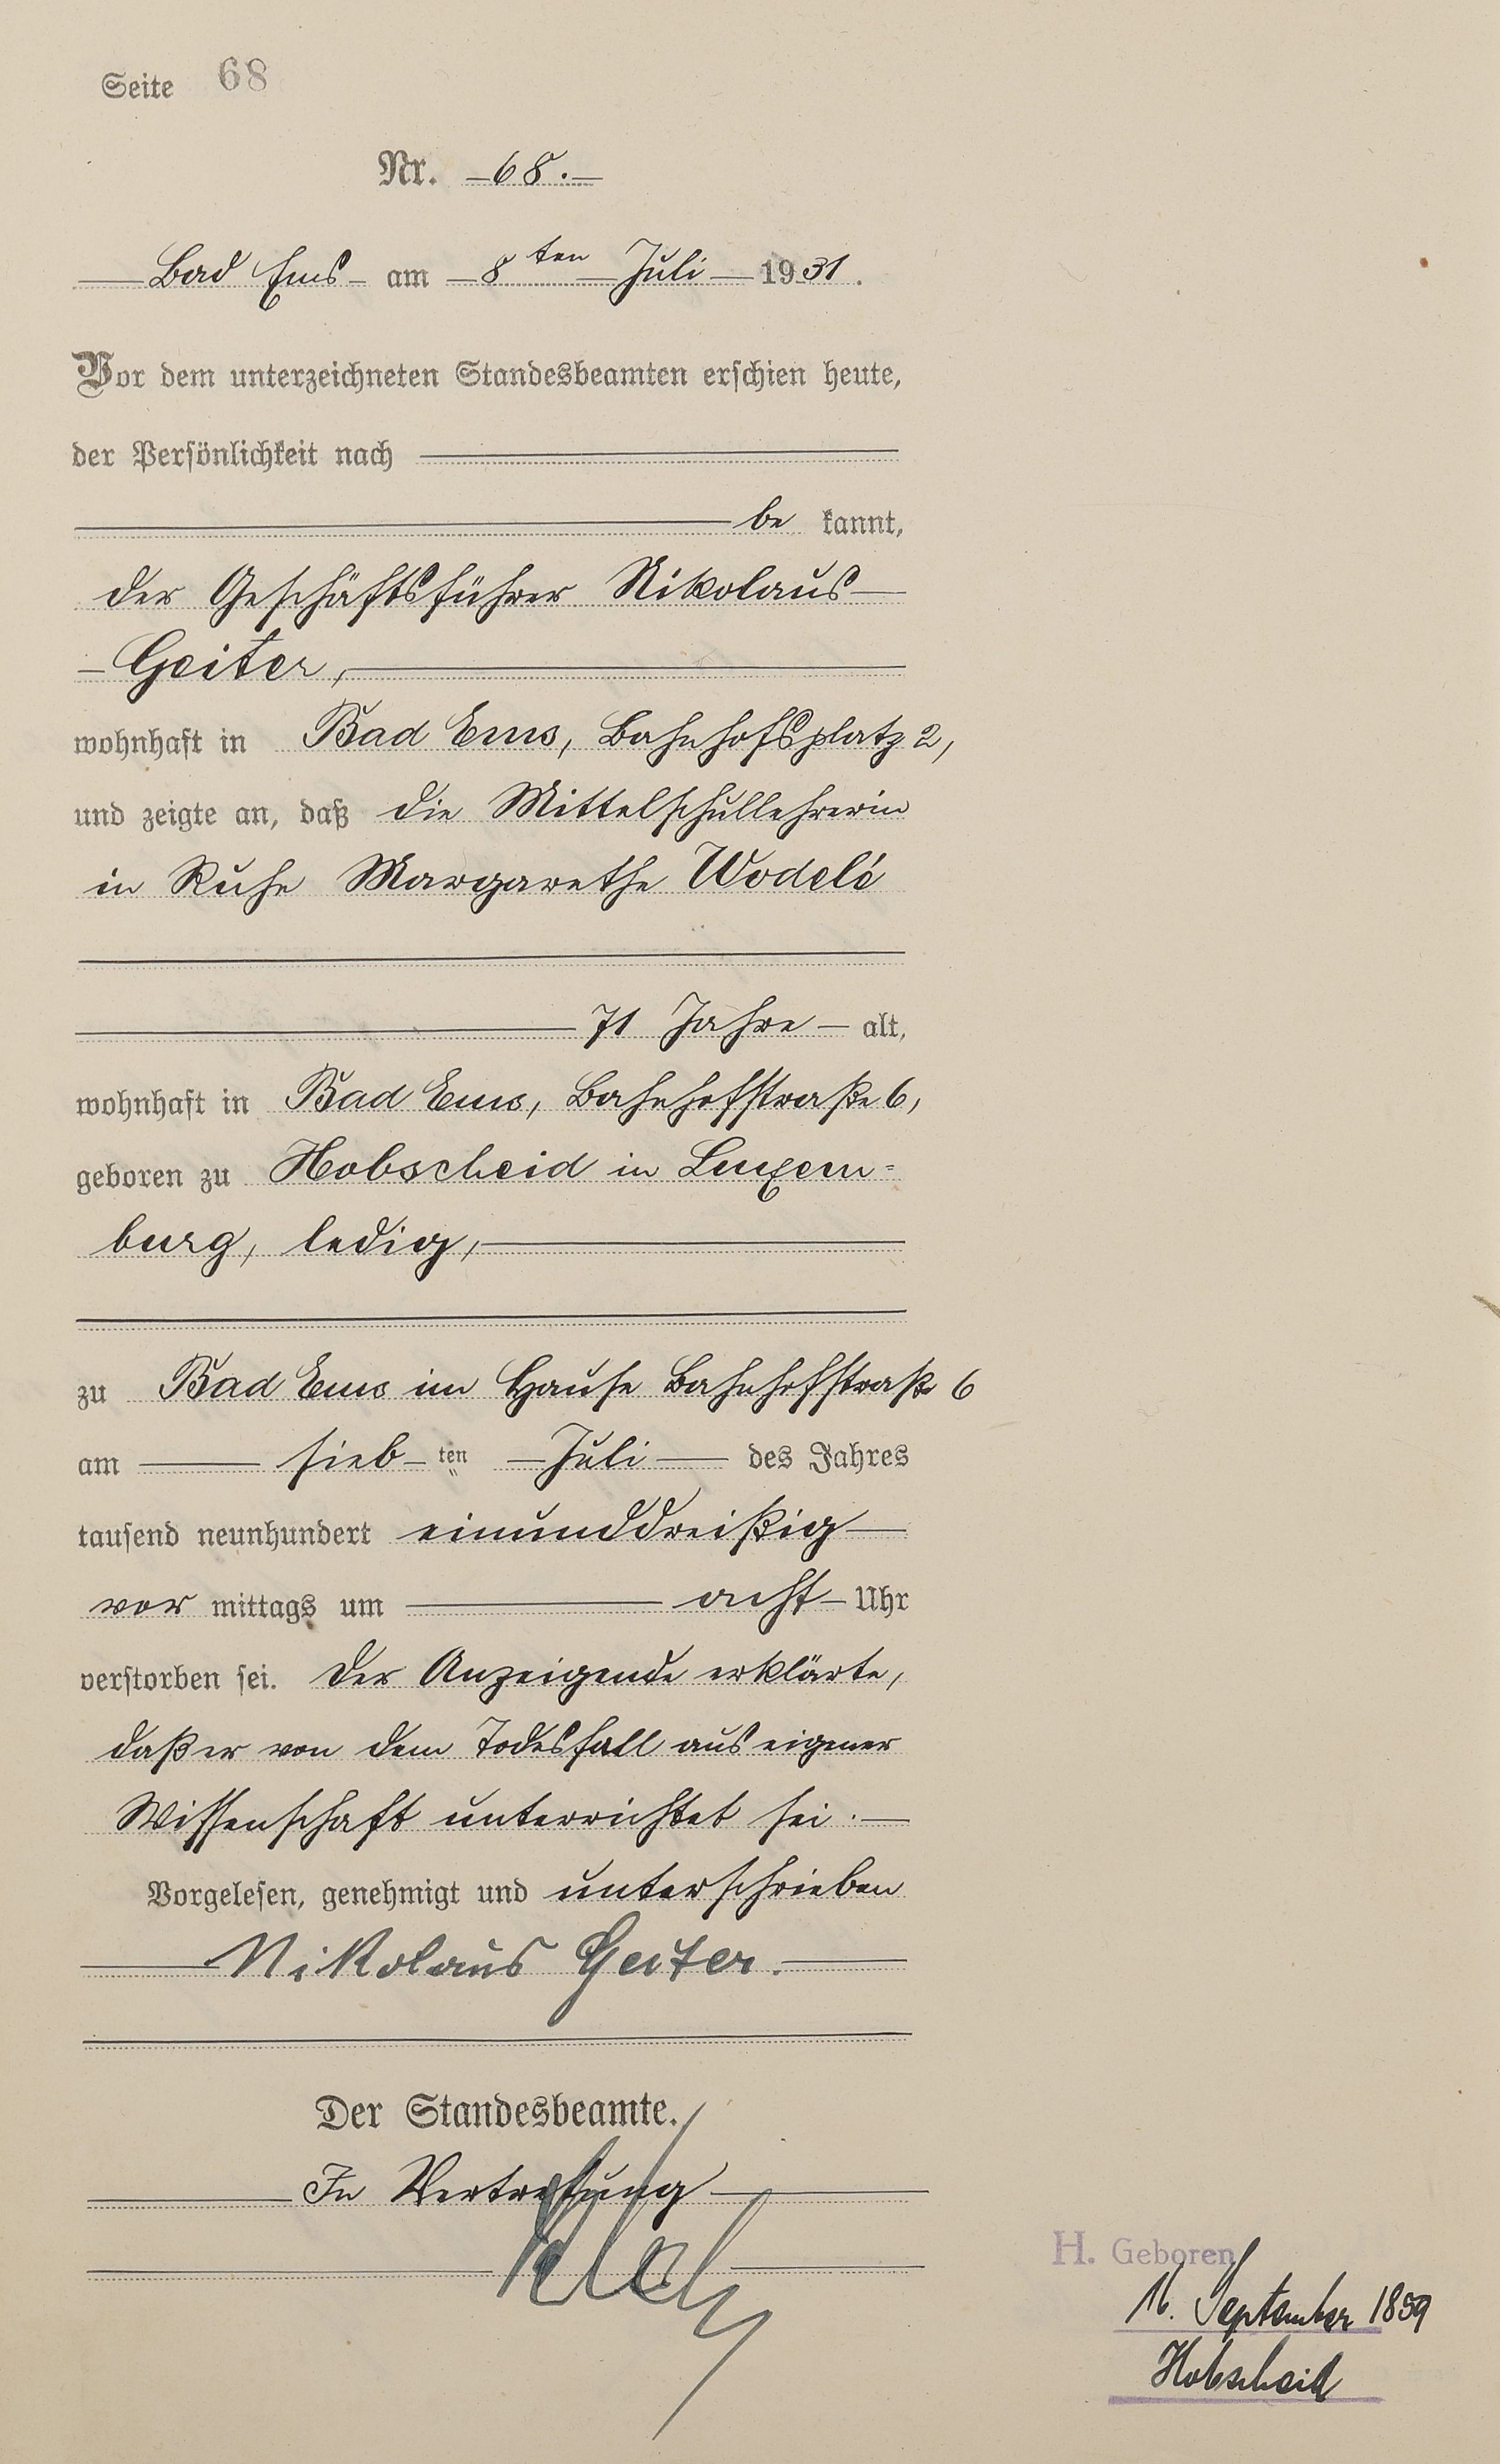 Seite 68
Nr. 68.
Bad Ems am 8ten Juli 1931.
Vor dem unterzeichneten Standesbeamten erschien heute,
der Persönlichkeit nach
be kannt,
der Geschäftsführer Nikolaus
Geiter,
wohnhaft in Bad Ems, Bahnhofsplatz 2,
und zeigte an, daß die Mittelschullehrerin
in Ruhe Margarethe Wodelé
71 Jahre alt,
wohnhaft in Bad Ems, Bahnhofstraße 6,
geboren zu Hobscheid in Luxem=
burg, ledig,
zu Bad Ems im Hause Bahnhofstraße 6
am sieb ten Juli des Jahres
tausend neunhundert einunddreißig
vor mittags um acht Uhr
verstorben sei. Der Anzeigende erklärte,
daß er von dem Todesfall aus eigener
Wissenschaft unterrichtet sei.
Vorgelesen, genehmigt und unterschrieben
Nikolaus Geiter.
Der Standesbeamte.
In Vertretung
H. Geboren
16. September 1859
Hobscheid